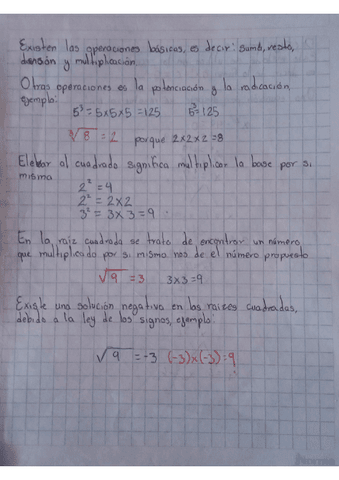 Existen las operaciones básicas, es decir: suma, resta,
división y multiplicación.
Otras operaciones es la potenciación y la radicación
ejemplo:
5³ = 5x5x5 = 125 5³ = 125
∛8 = 2 porque 2x2x2 = 8
Elevar al cuadrado significa multiplicar la base por si
misma
2² = 4
2² = 2x2
3² = 3x3 = 9
En la raiz cuadrada se trata de encontrar un número
que multiplicado por si mismo nos de el número propuesto
√9 = 3 3x3 = 9
Existe una solución negativa en las raices cuadradas,
debido a la ley de los signos, ejemplo:
√9 = -3 (-3)x(-3) = 9
Norma